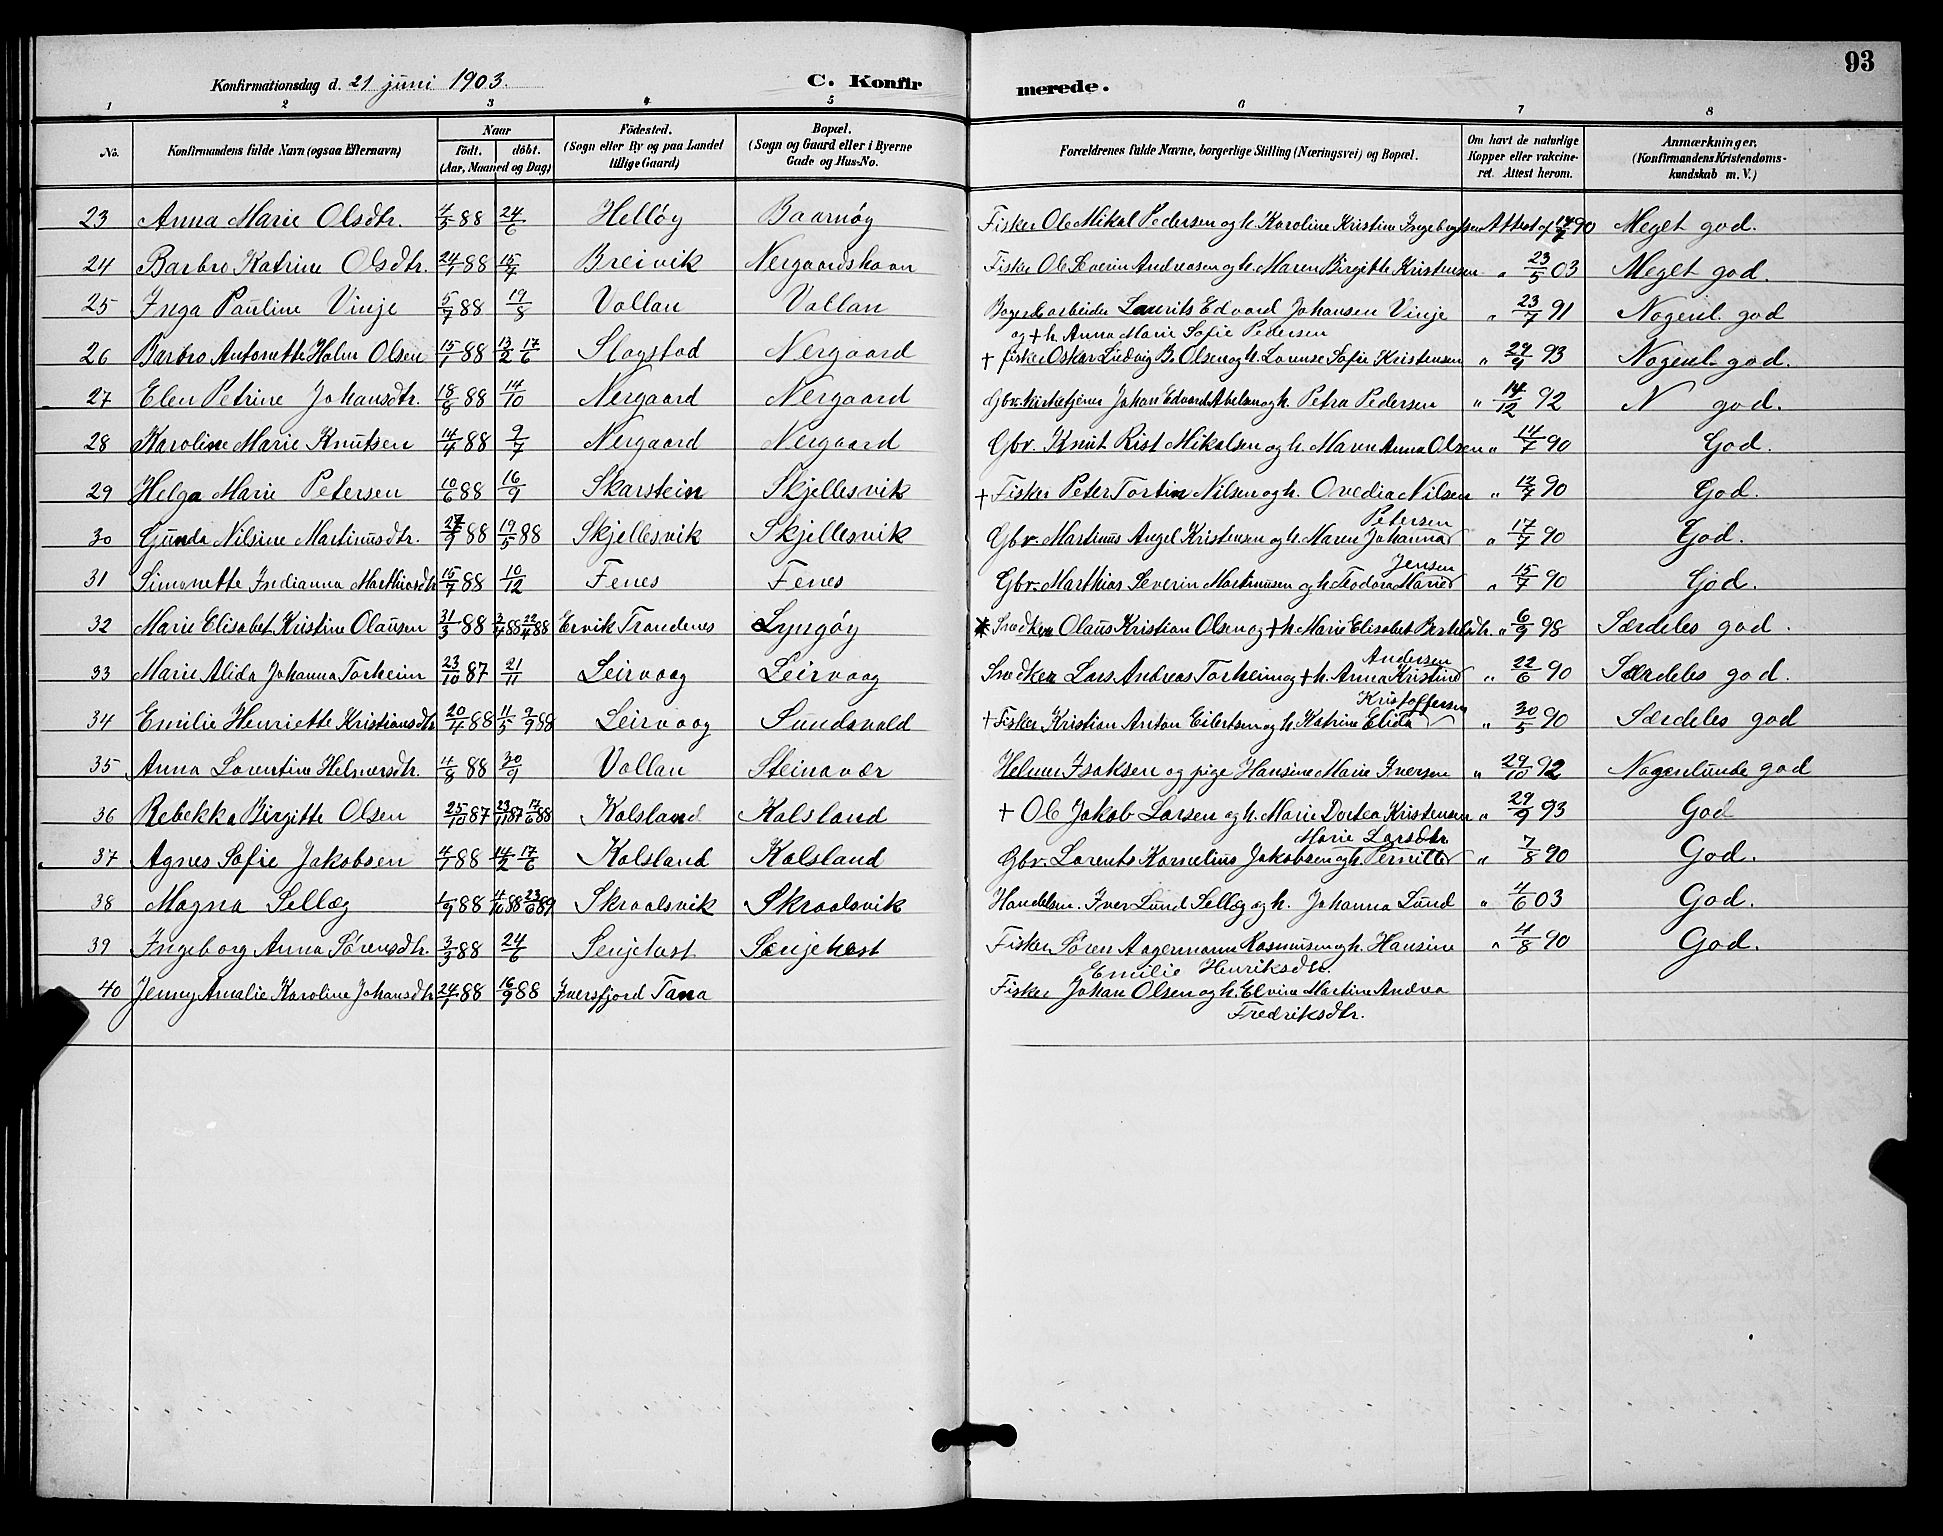 93
Konfirmationsdag d. 21 juni 1903. C. Konfirmerede.
1 2 3 4 5 6 7 8
No. Konfirmandens fulde Navn (ogsaa Efternavn) Naar födt. döbt. (Aar, Maaned og Dag) Födested. (Sogn eller By og paa Landet tillige Gaard) Bopæl. (Sogn og Gaard eller i Byerne Gade og Hus-No. Forældrenes fulde Navne, borgerlige Stilling (Næringsvei) og Bopæl. Om havt de naturlige Kopper eller vakcineret. Attest herom. Anmærkninger. (Konfirmandens Kristendomskundskab m. V.)
23 Anna Marie Olsdtr. 4/5 88 24/6 Helløy Baarnøy Fisker Ole Mikal Pedersen og h. Karoline Kristine Ingebrigtsen Attest af 17/7 90 Meget god.
24 Barbro Katrine Olsdtr. 24/1 88 15/7 Breivik Nergaardshavn Fisker Ole Severin Andreasen og h. Maren Birgitte Kristensen " 23/5 03 Meget god.
25 Inga Pauline Vinje 5/7 88 19/8 Vollan Vollan Laurits Edvard Johansen Vinje " 23/7 91 Nogenl. god
og + h. Anna Marie Sofie Pedersen
26 Barbro Antonette Holm Olsen 15/1 88 13/2 17/6 Slagstad Nergaard + fisker Oskar Ludvig B. Olsen og h. Lovise Sofie Kristensen " 29/9 93 Nogenl. god.
27 Elen Petrine Johansdtr. 18/8 88 14/10 Nergaard Nergaard Gbr. kirketjener Johan Edvard Abelsen og h. Petra Pedersen " 14/12 92 N god.
28 Karoline Marie Knutsen 14/4 88 9/7 Nergaard Nergaard Gbr. Knut Rist Mikalsen og h. Maren Anna Olsen " 14/7 90 God.
29 Helga Marie Petersen 10/6 88 16/9 Skarstein Skjellesvik + Fisker Peter Tortin Nilsen og h. Ovedia Nilsen " 12/7 90 God.
Petersen
30 Gunda Nilsine Martinusdtr. 88 19/5 88 Skjellesvik Skjellesvik Gbr. Martinus Angel Kristensen og h. Maren Johanna " 17/7 90 God.
Jensen
31 Simonette Indianna Marthiasdtr 15/7 88 10/12 Fenes Fenes Gbr. Marthias Severin Martinusen og h. Teodora Marie " 15/7 90 God.
32 Marie Elisabet Kristine Olausen 31/3 88 3/4 88 22/4 88 Ervik Trondenes Lyngøy Snedker Olaus Kristian Olsen og + h. Marie Elisabet Bertelsdtr. " 6/9 98 Særdeles god.
Andersen
33 Marie Alida Johanna Torheim 23/10 87 21/11 Leirvaag Leirvaag Snedker Lars Andreas Torheim og + h. Anna Kristine " 22/6 90 Særdeles god.
Kristoffersen
34 Emilie Henriette Kristiansdtr 20/4 88 11/5 9/9 88 Leirvaag Sundsvold + Fisker Kristian Anton Eilertsen og h. Katrine Elida " 30/5 90 Særdeles god
35 Anna Lorentine Helmersdtr. 11/8 88 30/9 Vollan Steinavær Helmer Isaksen og pige Hansine Marie Iversen " 29/10 92 Nogenlunde god
36 Rebekka Birgitte Olsen 25/10 87 23/11 87 17/6 88 Kalsland Kalsland + Ole Jakob Larsen og h. Marie Dortea Kristensen " 29/9 93 God
Marie Larsdtr.
37 Agnes Sofie Jakobsen 4/1 88 14/2 17/6 Kalsland Kalsland Gbr. Lorents Kornelius Jakobsen og h. Pernille " 7/8 90 God.
38 Magna Selläg 1/9 88 4/10 88 23/6 89 Skroolsvik Skroolsvik Handelsm. Iver Lund Selläg og h. Johanna Lund " 4/6 03 God.
39 Ingeborg Anna Sørensdtr. 3/3 88 24/6 Senjehest Senjehest Fisker Søren Aagermann Rasmusen og h. Hansine " 4/8 90 God.
Emilie Henriksdtr.
40 Jenny Amalie Karoline Johansdtr 24/1 88 16/9 88 Iversfjord Tana Fisker Johan Olsen og h. Elvine Martine Andrea
Fredriksdtr.